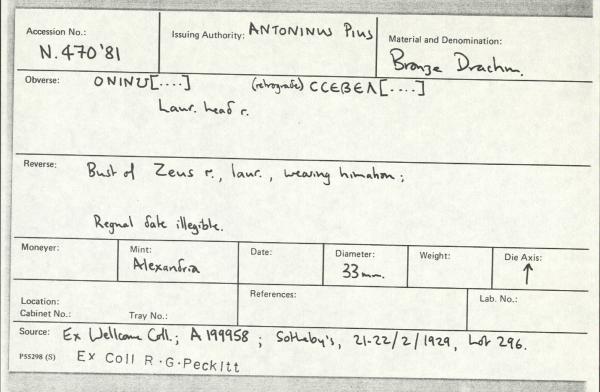 Accession No.: N.470'81
Issuing Authority: ANTONINUS PIUS
Material and Denomination: Bronze Drachm.
Obverse: ONINU[....] (retrograde) CCEBEΛ[....]
Laur. head r.
Reverse: Bust of Zeus r., laur., wearing himation;
Regnal date illegible.
Moneyer:
Mint: Alexandria
Date:
Diameter: 33mm.
Weight:
Die Axis: ↑
Location:
Cabinet No.: Tray No.:
References:
Lab. No.:
Source: Ex Wellcome Coll.; A 199958; Sotheby's, 21-22/2/1929, Lot 296.
PS5298 (S) Ex Coll R.G.Peckitt